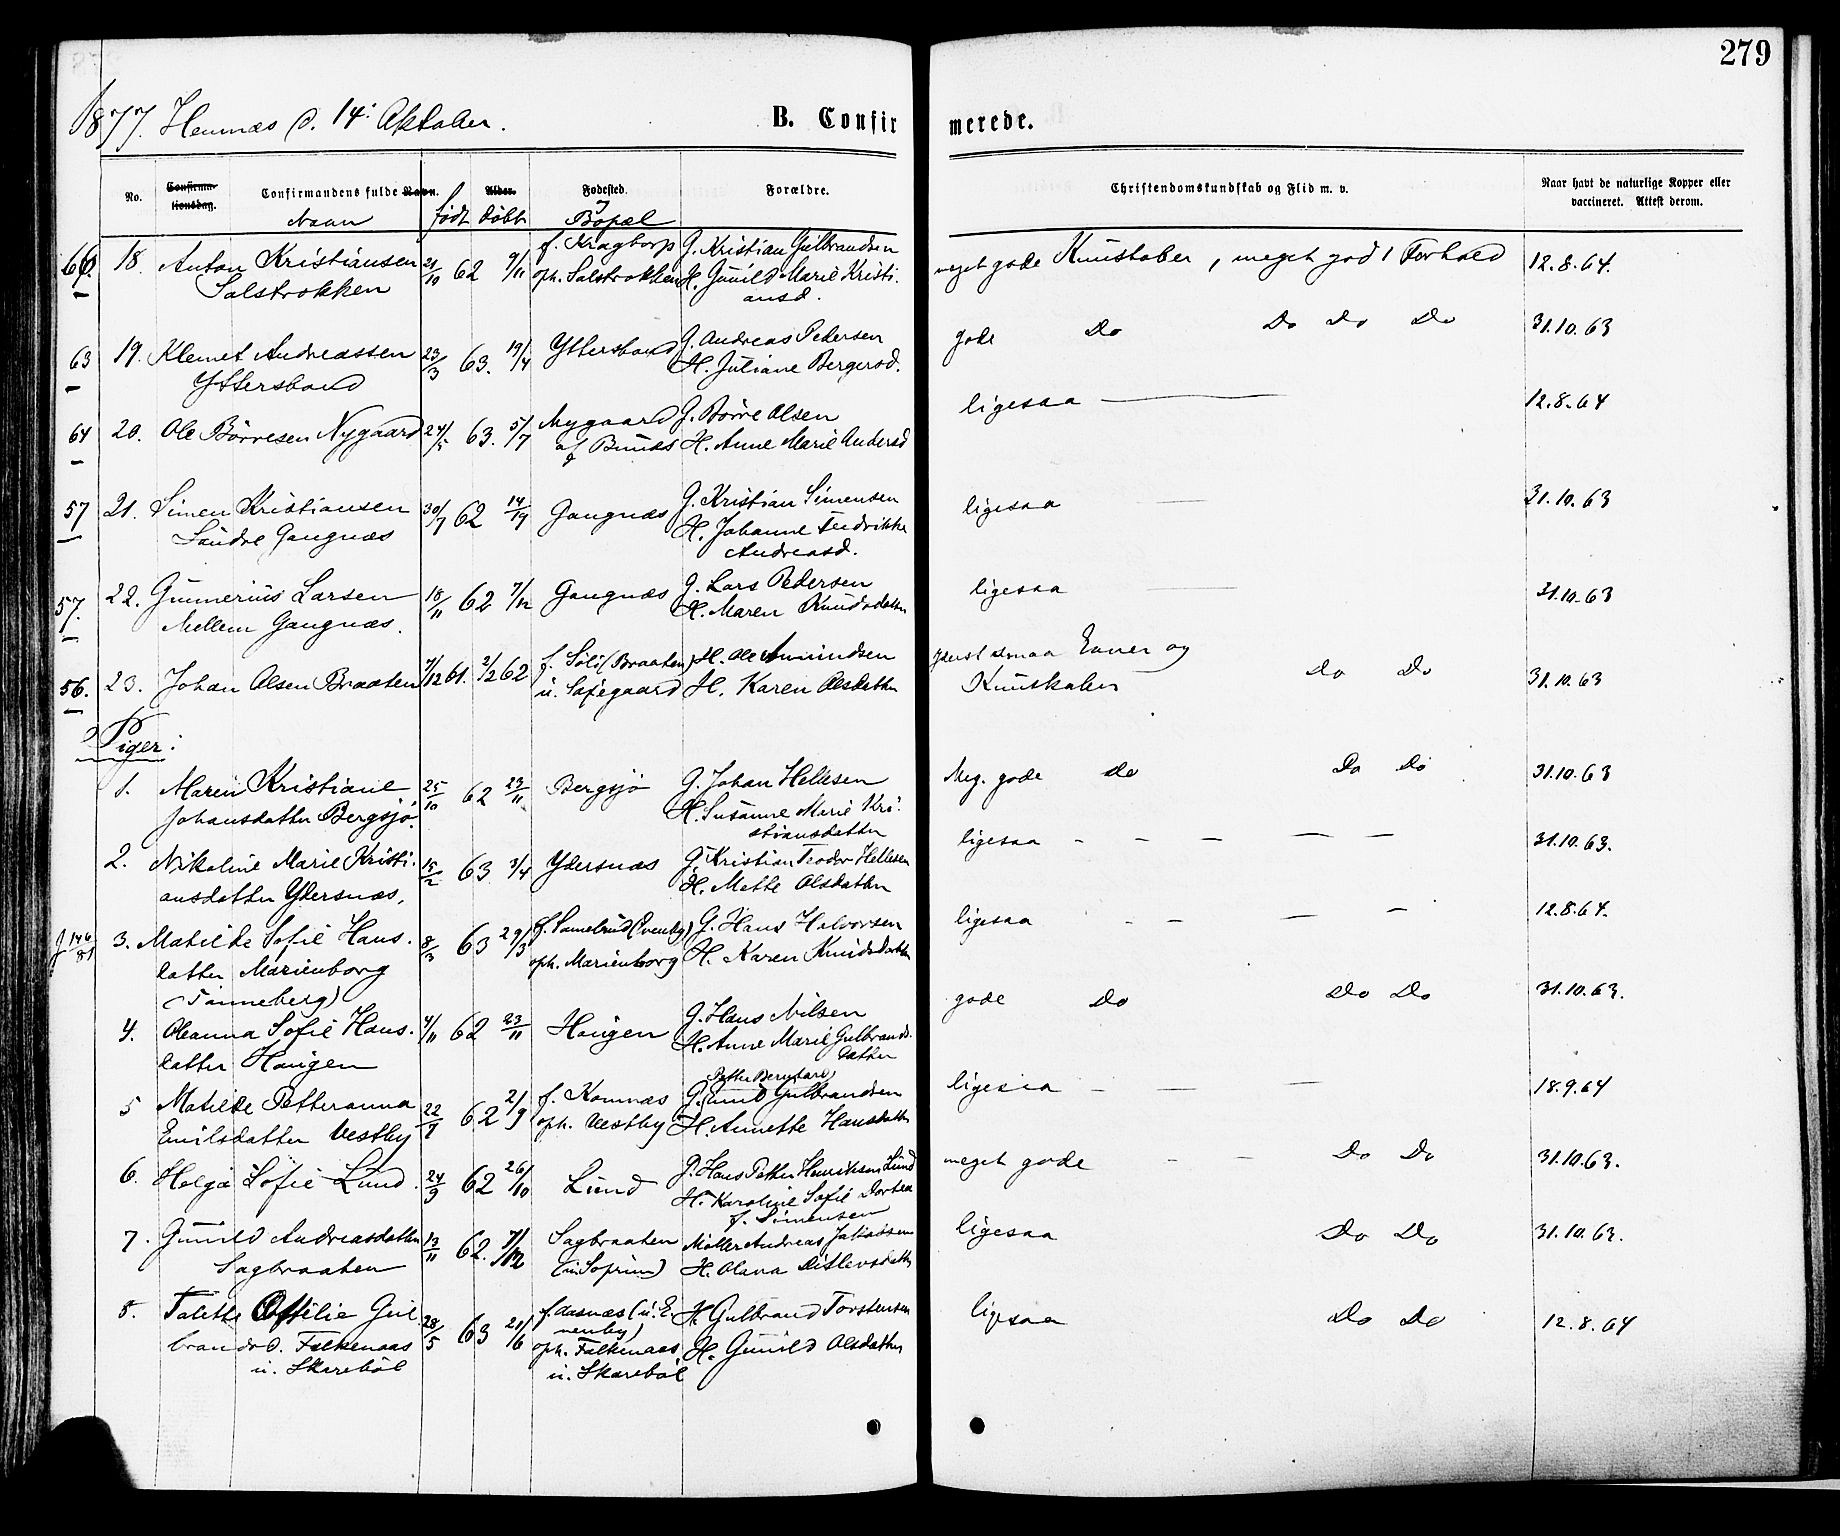 279
1877. Hemnæs d. 14: Oktober.
B. Confirmerede.
No. Confirmationsdag. Confirmandens fulde Navn. Alder. Fødested. Forældre. Christendomskundskab og Flid m. v. Naar havt de naturlige Kopper eller
vaccineret. Attest derom.
Navn født døbt Bopæl
66. 18. Anton Kristiansen 21/10 62 9/11 f. Kragtorp G. Kristian Gulbrandsen meget gode Kunskaber, meget god Forhold 12.8.64.
Solstrokken oph. Solstrokken H. Gunild Marie Kristi.
ansd.
63 19. Klemet Andreassen 23/3 63. 19/4 Yttersbond G. Andreas Pedersen gode Do Do Do Do 31.10.63
Yttersbond H. Juliane Bergersd.
64 20. Ole Børresen Nygaard 24/5 63. 5/7 Nygaard G. Børre Olsen ligesaa 12.8.64
af Bunæs H. Anne Marie Andersd
57 21. Simen Kristiansen 30/7 62 14/9 Gangnæs G. Kristian Simensen ligesaa 31.10.63
Søndre Gangnæs H. Johanne Fredrikke
Andreasd.
57. 22. Gunnerius Larsen 18/11 62 7/12 Gangnæs G. Lars Pedersen ligesaa 31.10.63
Mellem Gangnæs. H. Maren Knudsdatter
56. 23. Johan Olsen Braaten 7/12 61. 2/2 62 f. Søli (Braaten) H. Ole Amundsen yderst smaa Evner og Do Do 31.10.63
u. Sofegaard H. Karen Olsdatter Kunskaber
Piger:
1. Maren Kristiane 25/10 62 23/11 Bergsjø G. Johan Hellesen Meg. gode do Do Do 31.10.63
Johansdatter Bergsjø. H. Susanne Marie Kri.
stiansdatter
2. Nikoline Marie Kristi. 15/2 63 3/4 Ydersnæs G. Kristian Teodor Hellesen ligesaa 31.10.63.
ansdatter Ydersnæs, H. Mette Olsdatter
146/81 3. Matilde Sofie Hans. 8/3 63 29/3 G. Hans Halvorsen ligesaa 12.8.64.
datter Marienborg oph. Marienborg H. Karen Knudsdatter
(Tanneberg)
4. Oleanna Sofie Hans. 4/11 62 23/11 Haugen G. Hans Nilsen gode Do Do Do 31.10.63.
datter Haugen H. Anne Marie Gulbrands.
datter
5 Matilde Petteranna 22/7 62 21/9 f. Komnæs G. Emil Gulbrandsen ligesaa 18.9.64
Emilsdatter Vestby oph. Vestby H. Annette Hansdatter
6. Helga Sofie Lund. 24/9 62 26/10 Lund G. Hans Petter Henriksen Lund meget gode Do Do 31.10.63.
H. Karoline Sofie Dortea
f. Simensen
7. Gunild Andreasdatter 13/11 62. 7/12 Sagbraaten Møller Andreas Jakobsen ligesaa Do Do 31.10.63.
Sagbraaten H. Olava Ditlevsdatter
8. Talette Offilie Gul 28/5 63 21/6 f. Aasnæs H. Gulbrand Torstensen ligesaa Do Do 12.8.64
brandsd. Falkenaas oph. Falkenaas H. Gunild Olsdatter
u. Skarebøl u. Skarebøl